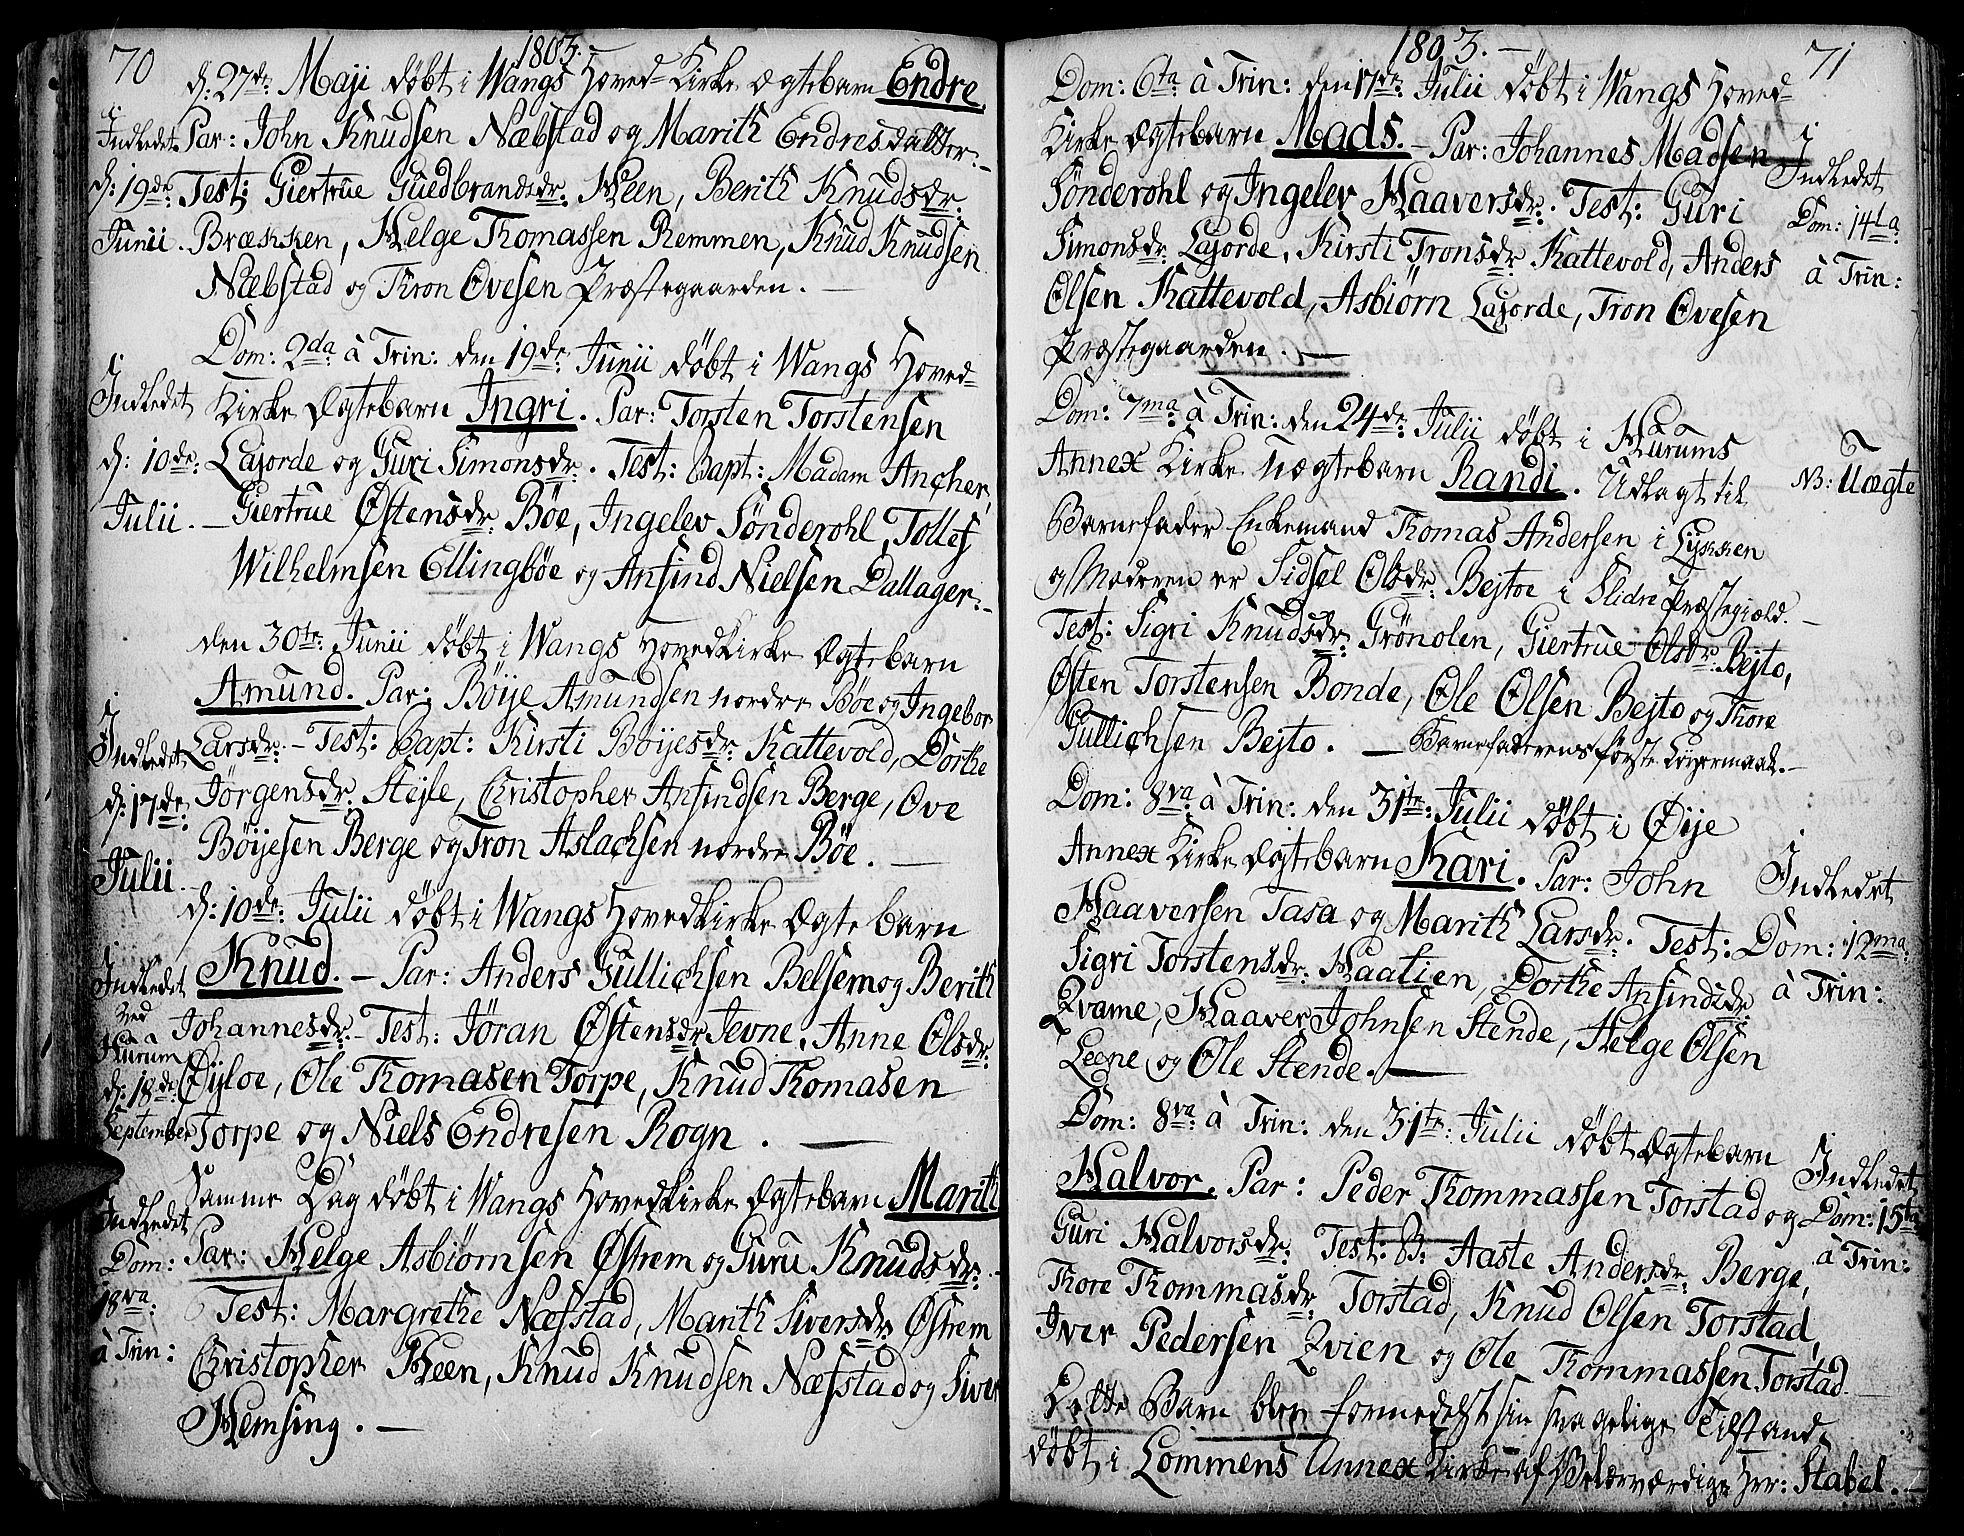 70
1803.
d: 27de Maji døbt i Wangs Hoved-Kirke Ægtebarn Endre
Indledet Par: John Knudsen Næbstad og Marith Endresdatter. -
d: 19de Test: Giertrue Guedbrandsdr. Heen, Berith Knudsdr.
Junii. Bræcken, Helge Thomassen Remmen, Knud Knudsen
Næbstad og Thron Ovesen Præstegaarden. -
Dom: 2da à Trin: den 19de Junii døbt i Wangs Hoved-
Indledet Kirke Ægtebarn Ingri. Par: Torsten Torstensen
d: 10de Lajorde og Guri Simonsdr. Test: Bapt: Madam Ancher,
Julii. - Giertrue Østensdr. Bøe, Ingelev Sønderohl, Tollef
Wilhelmsen Ellingbøe og Ansind Nielsen Dallager. -
den 30te Junii døbt i Wangs Hovedkirke Ægtebarn
Amund. Par: Böije Amundsen nordre Böe og Ingebor
Indledet Larsdr. - Test: Bapt: Kirsti Böijesdr. Kattevold, Dorthe
d: 17de Jörgensdr. Stejle, Christopher Ansindsen Berge, Ove
Julii. Böijesen Berge og Tron Aslachsen nordre Böe. -
d: 10de Julii døbt i Wangs Hovedkirke Ægte barn
Indledet Knud. - Par: Anders Gullichsen Belsem og Berith
ved Hurum Johannesdr. - Test: Jöran Østensdr. Jevne, Anne Olsdr.
d: 18de Øyloe, Ole Thomasen Torpe, Knud Thomasen
September Torpe og Niels Endresen Rogn. -
Samme Dag døbt i Wangs Hovedkirke Ægtebarn Marith
Indledet Par: Helge Asbiørnsen Østrem og Guru Knudsdr. -
Dom: 18va à Trin: Test: Margrethe Næsstad, Marith Siversdr. Østrem
Christopher Heen, Knud Knudsen Næsstad og Siver
Hemsing. -
1803. -
71
Dom: 6ta à Trin: den 17de Julii døbt i Wangs Hoved-
Kirke Ægtebarn Mads. - Par: Johannes Madsen
Indledet
Sønderohl og Ingelev Haaversdr. Test: Guri
Dom: 14ta
Simonsdr. Lajorde, Kirsti Tronsdr. Kattevold, Anders
à Trin:
Olsen Kattevold, Asbiørn Lajorde, Tron Ovesen
Præstegaarden. -
Dom: 7ma à Trin: den 24de Julii døbt i Hurums
Annex Kirke uægtebarn Randi. Udlagt til
NB: Uægte
Barnefader Enkemand Thomas Andersen i Lykken
og Moderen er Sidsel Olsdr. Bejtoe i Slidre Præstegield. -
Test: Sigri Knudsdr. Grönolen, Giertrue Olsdr. Bejto,
Østen Torstensen Bonde, Ole Olsen Bejto og Thore
Gullichsen Bejto. - Barnefaderens første Leiermaal. -
Dom: 8va à Trin: den 31te Julii døbt i Øije
Annex Kirke Ægtebarn Kari. Par: John
Indledet
Haaversen Tasa og Marith Larsdr. Test:
Dom: 12ma
Sigri Torstensdr. Haalien, Dorthe Ansindsdr.
à Trin:
Qvame, Haaver Johnsen Stende, Helge Olsen
Leene, og Ole Stende. -
Dom: 8va à Trin: den 31te Julii døbt Ægtebarn
Halvor. Par: Peder Thommassen Torstad og
Indledet
Dom: 15ta
Guri Halvorsdr. Test: B: Aaste Andersdr. Berge,
à Trin:
Thore Thommasdr. Torstad, Knud Olsen Torstad,
Iver Pedersen Qvien og Ole Thommassen Torstad. -
Dette Barn blev formedelst sin svagelige Tilstand
døbt i Lommens Annex Kirke af Velærværdige Hrr: Stabel. -